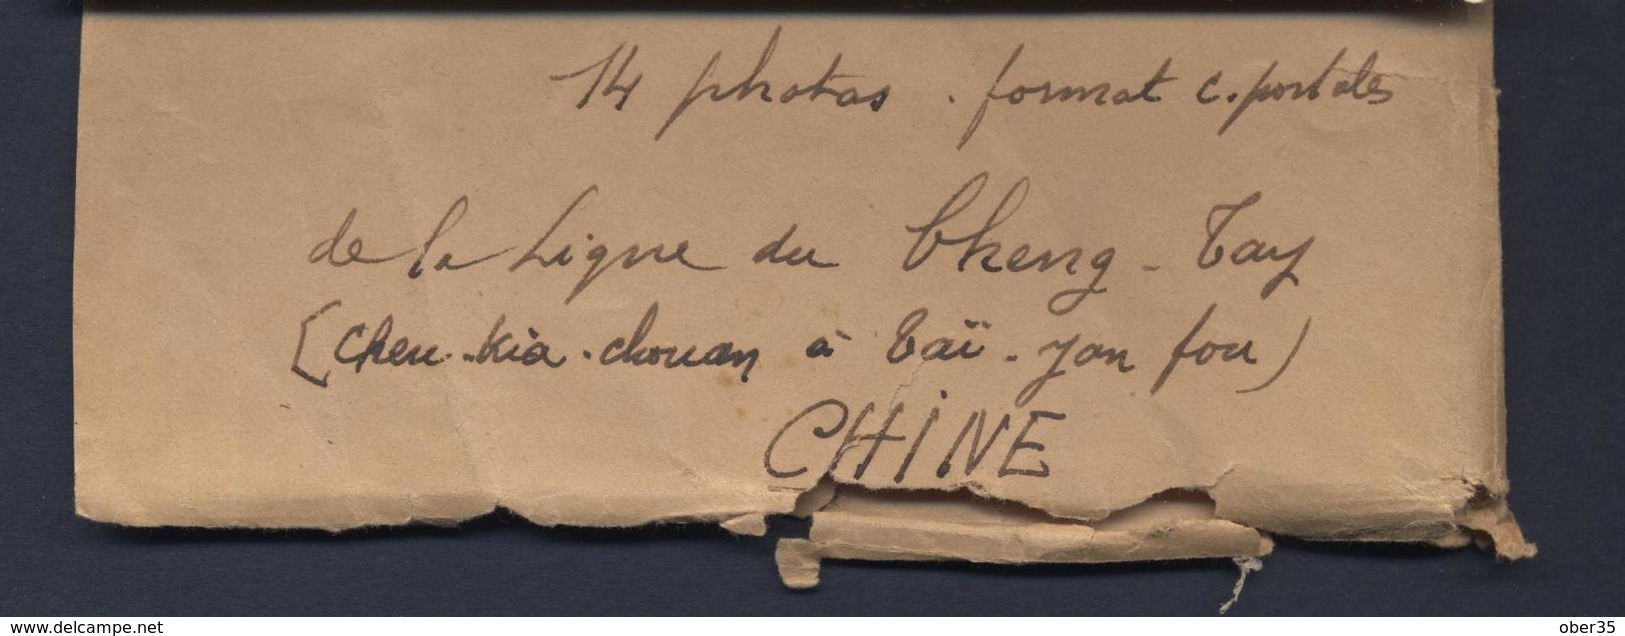 14 photos. format c. postales
de la Ligne du Cheng-Tay
(Cheu-kia-chouan à Taï-yan fou)
CHINE
www.delcampe.net
ober35